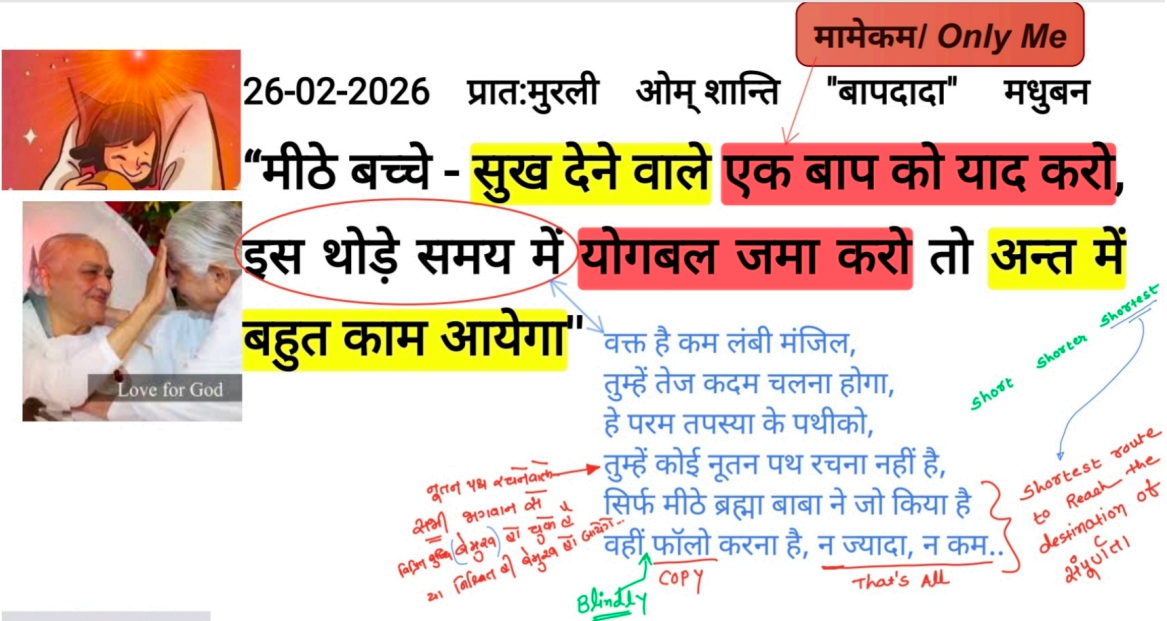 मामेकम/ Only Me
26-02-2026 प्रात:मुरली ओम् शान्ति "बापदादा" मधुबन
“मीठे बच्चे - सुख देने वाले एक बाप को याद करो,
इस थोड़े समय में योगबल जमा करो तो अन्त में
बहुत काम आयेगा"
Love for God
वक्त है कम लंबी मंजिल,
तुम्हें तेज कदम चलना होगा,
हे परम तपस्या के पथीको,
तुम्हें कोई नूतन पथ रचना नहीं है,
सिर्फ मीठे ब्रह्मा बाबा ने जो किया है
वहीं फॉलो करना है, न ज्यादा, न कम..
short shorter shortest
shortest route
to Reach the
destination of
संपूर्णता
नूतन पथ रचनेवाले
सभी भगवान से
(बेमुख) हो चुके है
या निश्चित ही बेमुख हो जायेंगे...
COPY
That's All
Blindly